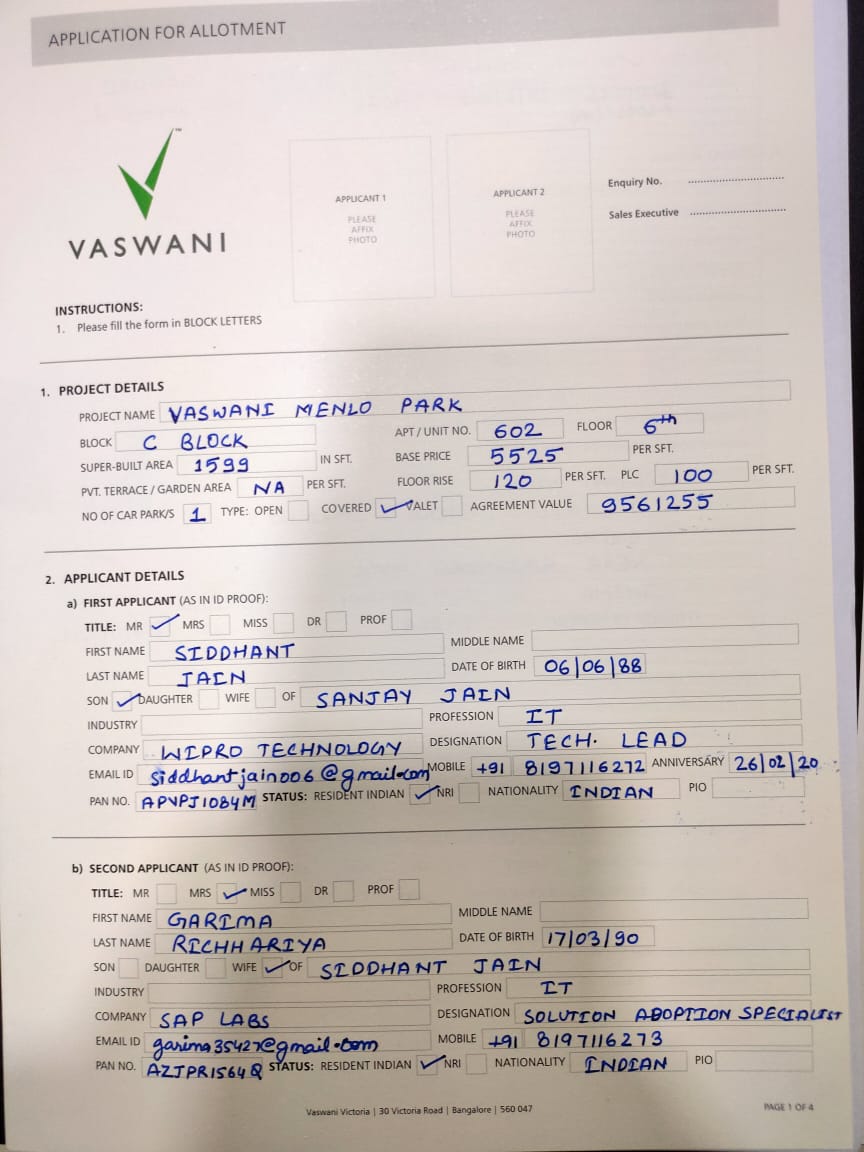 APPLICATION FOR ALLOTMENT
VASWANI™
APPLICANT 1
PLEASE
AFFIX
PHOTO
APPLICANT 2
PLEASE
AFFIX
PHOTO
Enquiry No. ................................
Sales Executive ................................
INSTRUCTIONS:
1. Please fill the form in BLOCK LETTERS
1. PROJECT DETAILS
PROJECT NAME VASWANI MENLO PARK
BLOCK C BLOCK APT / UNIT NO. 602 FLOOR 6th
SUPER-BUILT AREA 1599 IN SFT. BASE PRICE 5525 PER SFT.
PVT. TERRACE / GARDEN AREA NA PER SFT. FLOOR RISE 120 PER SFT. PLC 100 PER SFT.
NO OF CAR PARK/S 1 TYPE: OPEN COVERED ✓ VALET AGREEMENT VALUE 9561255
2. APPLICANT DETAILS
a) FIRST APPLICANT (AS IN ID PROOF):
TITLE: MR ✓ MRS MISS DR PROF
FIRST NAME SIDDHANT MIDDLE NAME
LAST NAME JAIN DATE OF BIRTH 06/06/88
SON ✓ DAUGHTER WIFE OF SANJAY JAIN
INDUSTRY PROFESSION IT
COMPANY WIPRO TECHNOLOGY DESIGNATION TECH. LEAD
EMAIL ID siddhantjain006@gmail.com MOBILE +91 8197116272 ANNIVERSARY 26/02/20
PAN NO. APVPJ1084M STATUS: RESIDENT INDIAN ✓ NRI NATIONALITY INDIAN PIO
b) SECOND APPLICANT (AS IN ID PROOF):
TITLE: MR MRS ✓ MISS DR PROF
FIRST NAME GARIMA MIDDLE NAME
LAST NAME RICHHARIYA DATE OF BIRTH 17/03/90
SON DAUGHTER WIFE ✓ OF SIDDHANT JAIN
INDUSTRY PROFESSION IT
COMPANY SAP LABS DESIGNATION SOLUTION ADOPTION SPECIALIST
EMAIL ID garima35427@gmail.com MOBILE +91 8197116273
PAN NO. AZJPR1564Q STATUS: RESIDENT INDIAN ✓ NRI NATIONALITY INDIAN PIO
Vaswani Victoria | 30 Victoria Road | Bangalore | 560 047
PAGE 1 OF 4